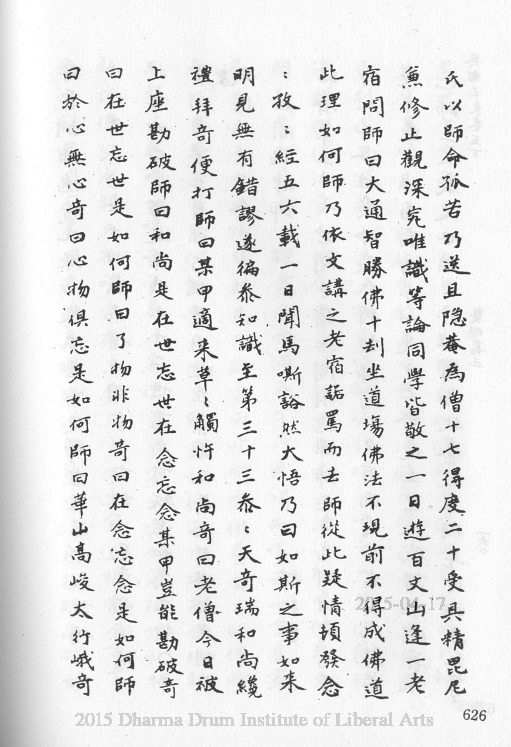 氏以師命孤苦乃送且隐菴為僧十七得度二十受具精毘尼
兼修止觀深究唯識等論同學皆敬之一日遊百丈山逢一老
宿問師曰大通智勝佛十刦坐道場佛法不現前不得成佛道
此理如何師乃依文講之老宿詬罵而去師從此疑情頓發念
〻孜〻經五六載一日聞馬嘶豁然大悟乃曰如斯之事如来
明見無有錯謬遂徧叅知識至第三十三叅〻天奇瑞和尚纔
禮拜奇便打師曰某甲適来草〻觸忤和尚奇曰老僧今日被
上座勘破師曰和尚是在世忘世在念忘念某甲豈能勘破奇
曰在世忘世是如何師曰了物非物奇曰在念忘念是如何師
曰於心無心奇曰心物俱忘是如何師曰華山高峻太行峨奇
626
2015-04-17
2015 Dharma Drum Institute of Liberal Arts